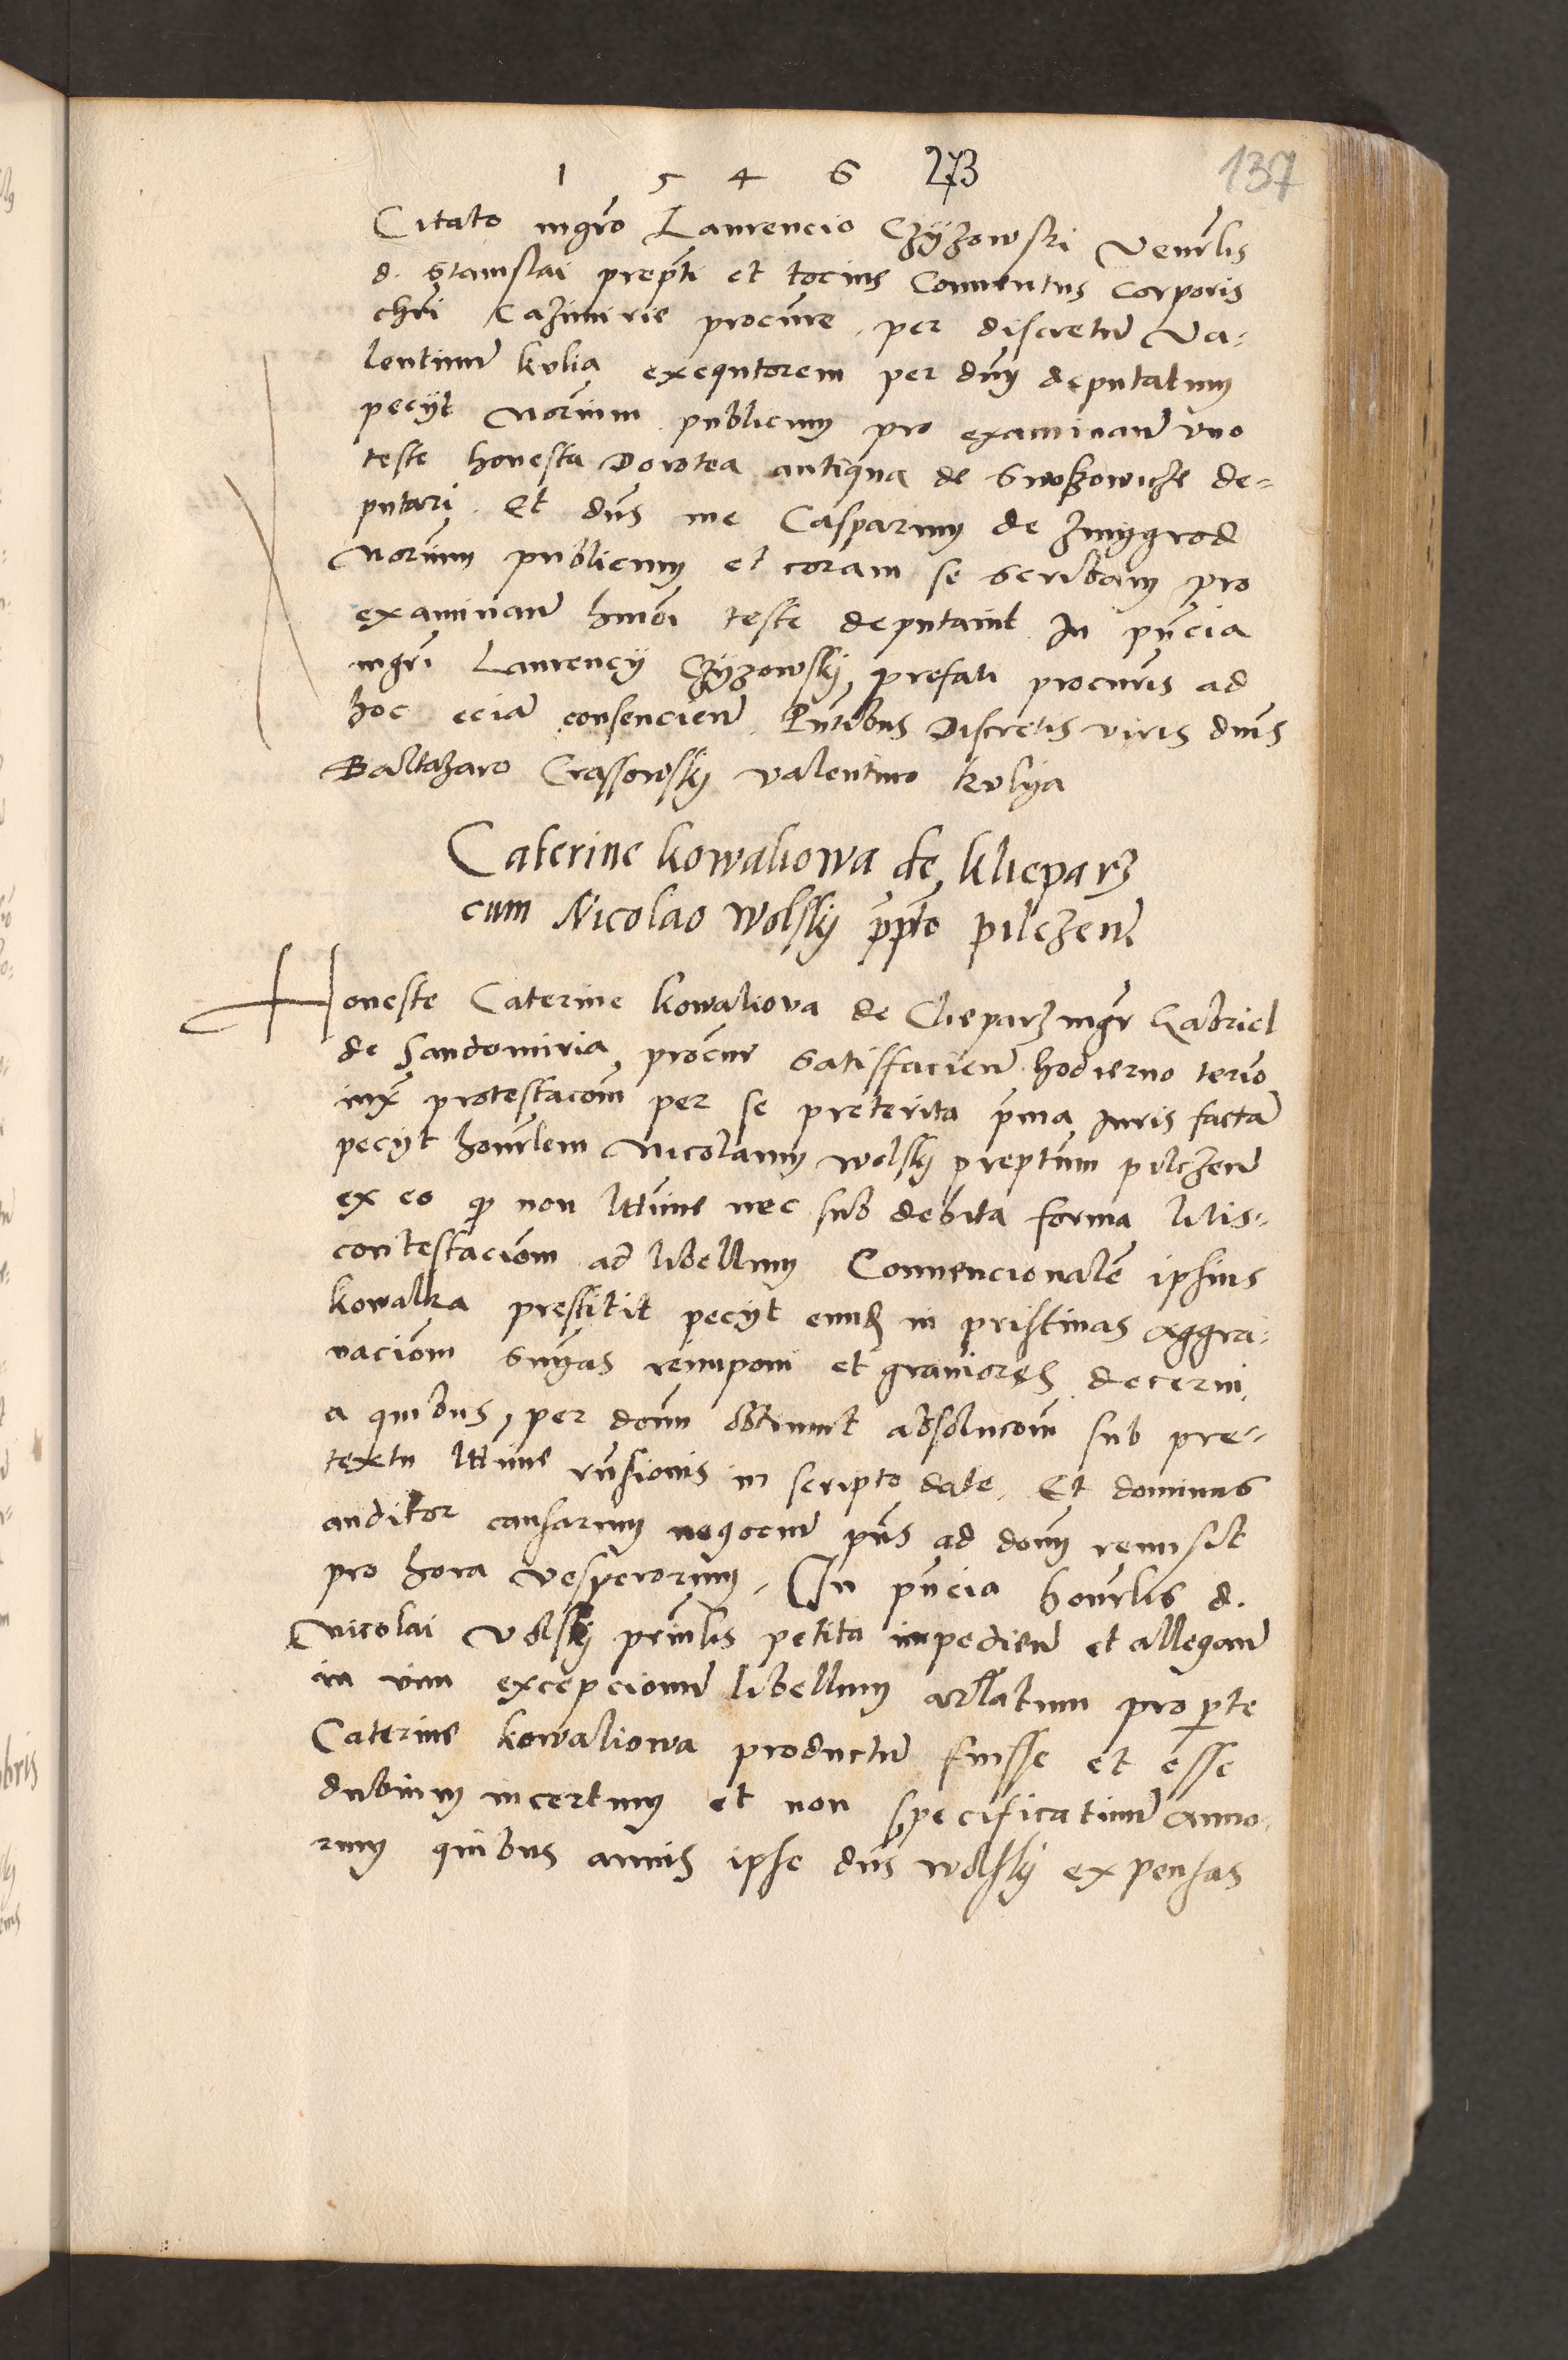 1 5 4 6 273 137
Citato mgro Laurencio Czÿzowski Venerlis
d. Stanislai prepti et tocius Conventus Corporis
chri Cazimirie procure, per discretu Va-
lentinu kulia exequtorem per dny deputatum
pecÿt Norium publicum pro examinan uno
teste honesta Dorotea antiqua de Swoszowicze de-
putari. Et dns me Casparum de Zmygrod
Norium publicum et coram se scribam pro
examinan hmoi teste deputavit In pncia
mgri Laurencÿ Czÿzowskÿ prefati procuris ad
hoc eciam consencien. Pntibus Discretis viris dnis
Baltazaro Crassowskÿ valentino kulÿa
Caterine Kowaliowa de Klieparz
cum Nicolao Wolskÿ ppto pilczen
Honeste Caterine Kowaliova de Clieparz mgr Gabriel
de Sandomiria procur satisfacien hodierno terio
iux protestacom per se preterita pma Iuris facta
pecÿt honorlem Nicolaum Wolskÿ preptum pilczen
ex eo q non lttime nec sub debita forma litis-
contestaciom ad libellum Convencionale ipsius
kowalka prestitit pecÿt eund in pristinas aggra-
vaciom snÿas reimponi et graviores decerni
a quibus, per donu obtinuit absolucom sub pre-
textu lttime rnsionis in scripto date. Et dominus
auditor causarum negocium pns ad donu remisit
pro hora vesperorum. In pncia honorlis d.
Nicolai Volskÿ prinlis petita impedien et allegan
in vim excepcionu libellum arlatum pro pte
Caterine Kowaliowa productu fuisse et esse
dubium incertum et non specificativum anno-
rum quibus annis ipse dns Wolskÿ expensas